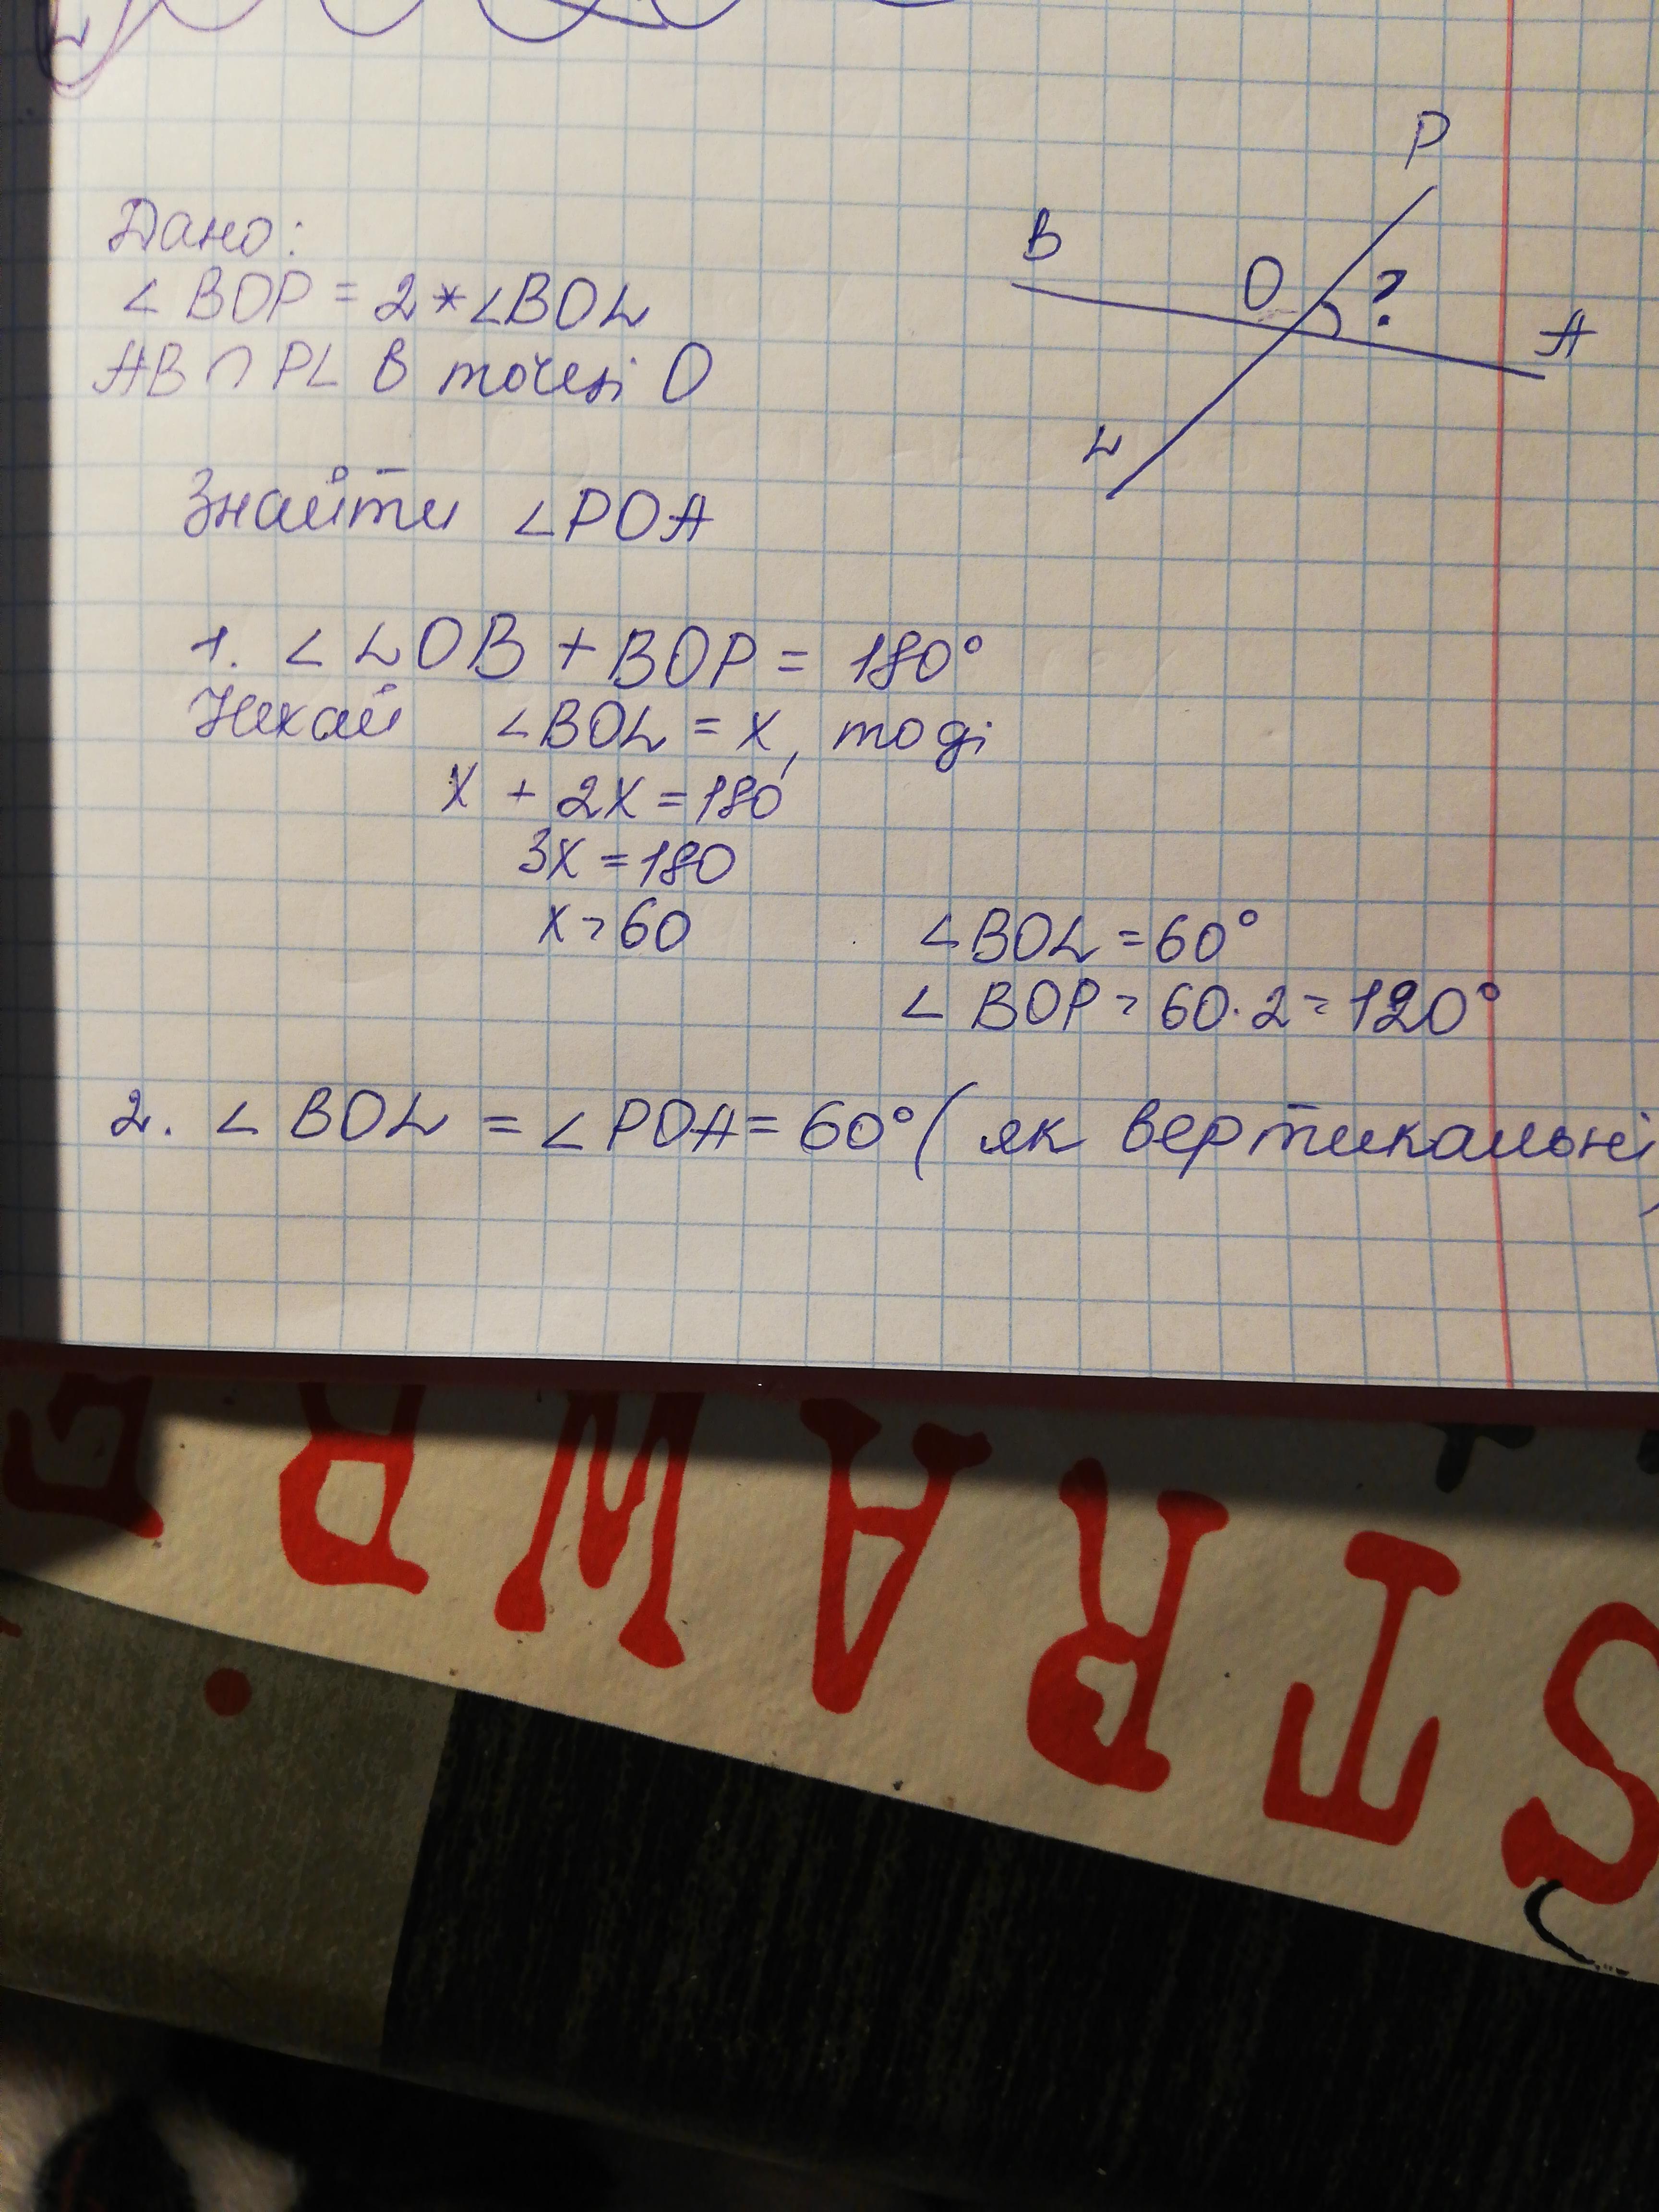 P
B
O
?
A
L
Дано:
∠BOP = 2*∠BOL
AB ∩ PL в точці O
Знайти ∠POA
1. ∠LOB + BOP = 180°
Нехай ∠BOL = x, тоді
x + 2x = 180
3x = 180
x = 60
∠BOL = 60°
∠BOP = 60·2 = 120°
2. ∠BOL = ∠POA = 60° (як вертикальні)